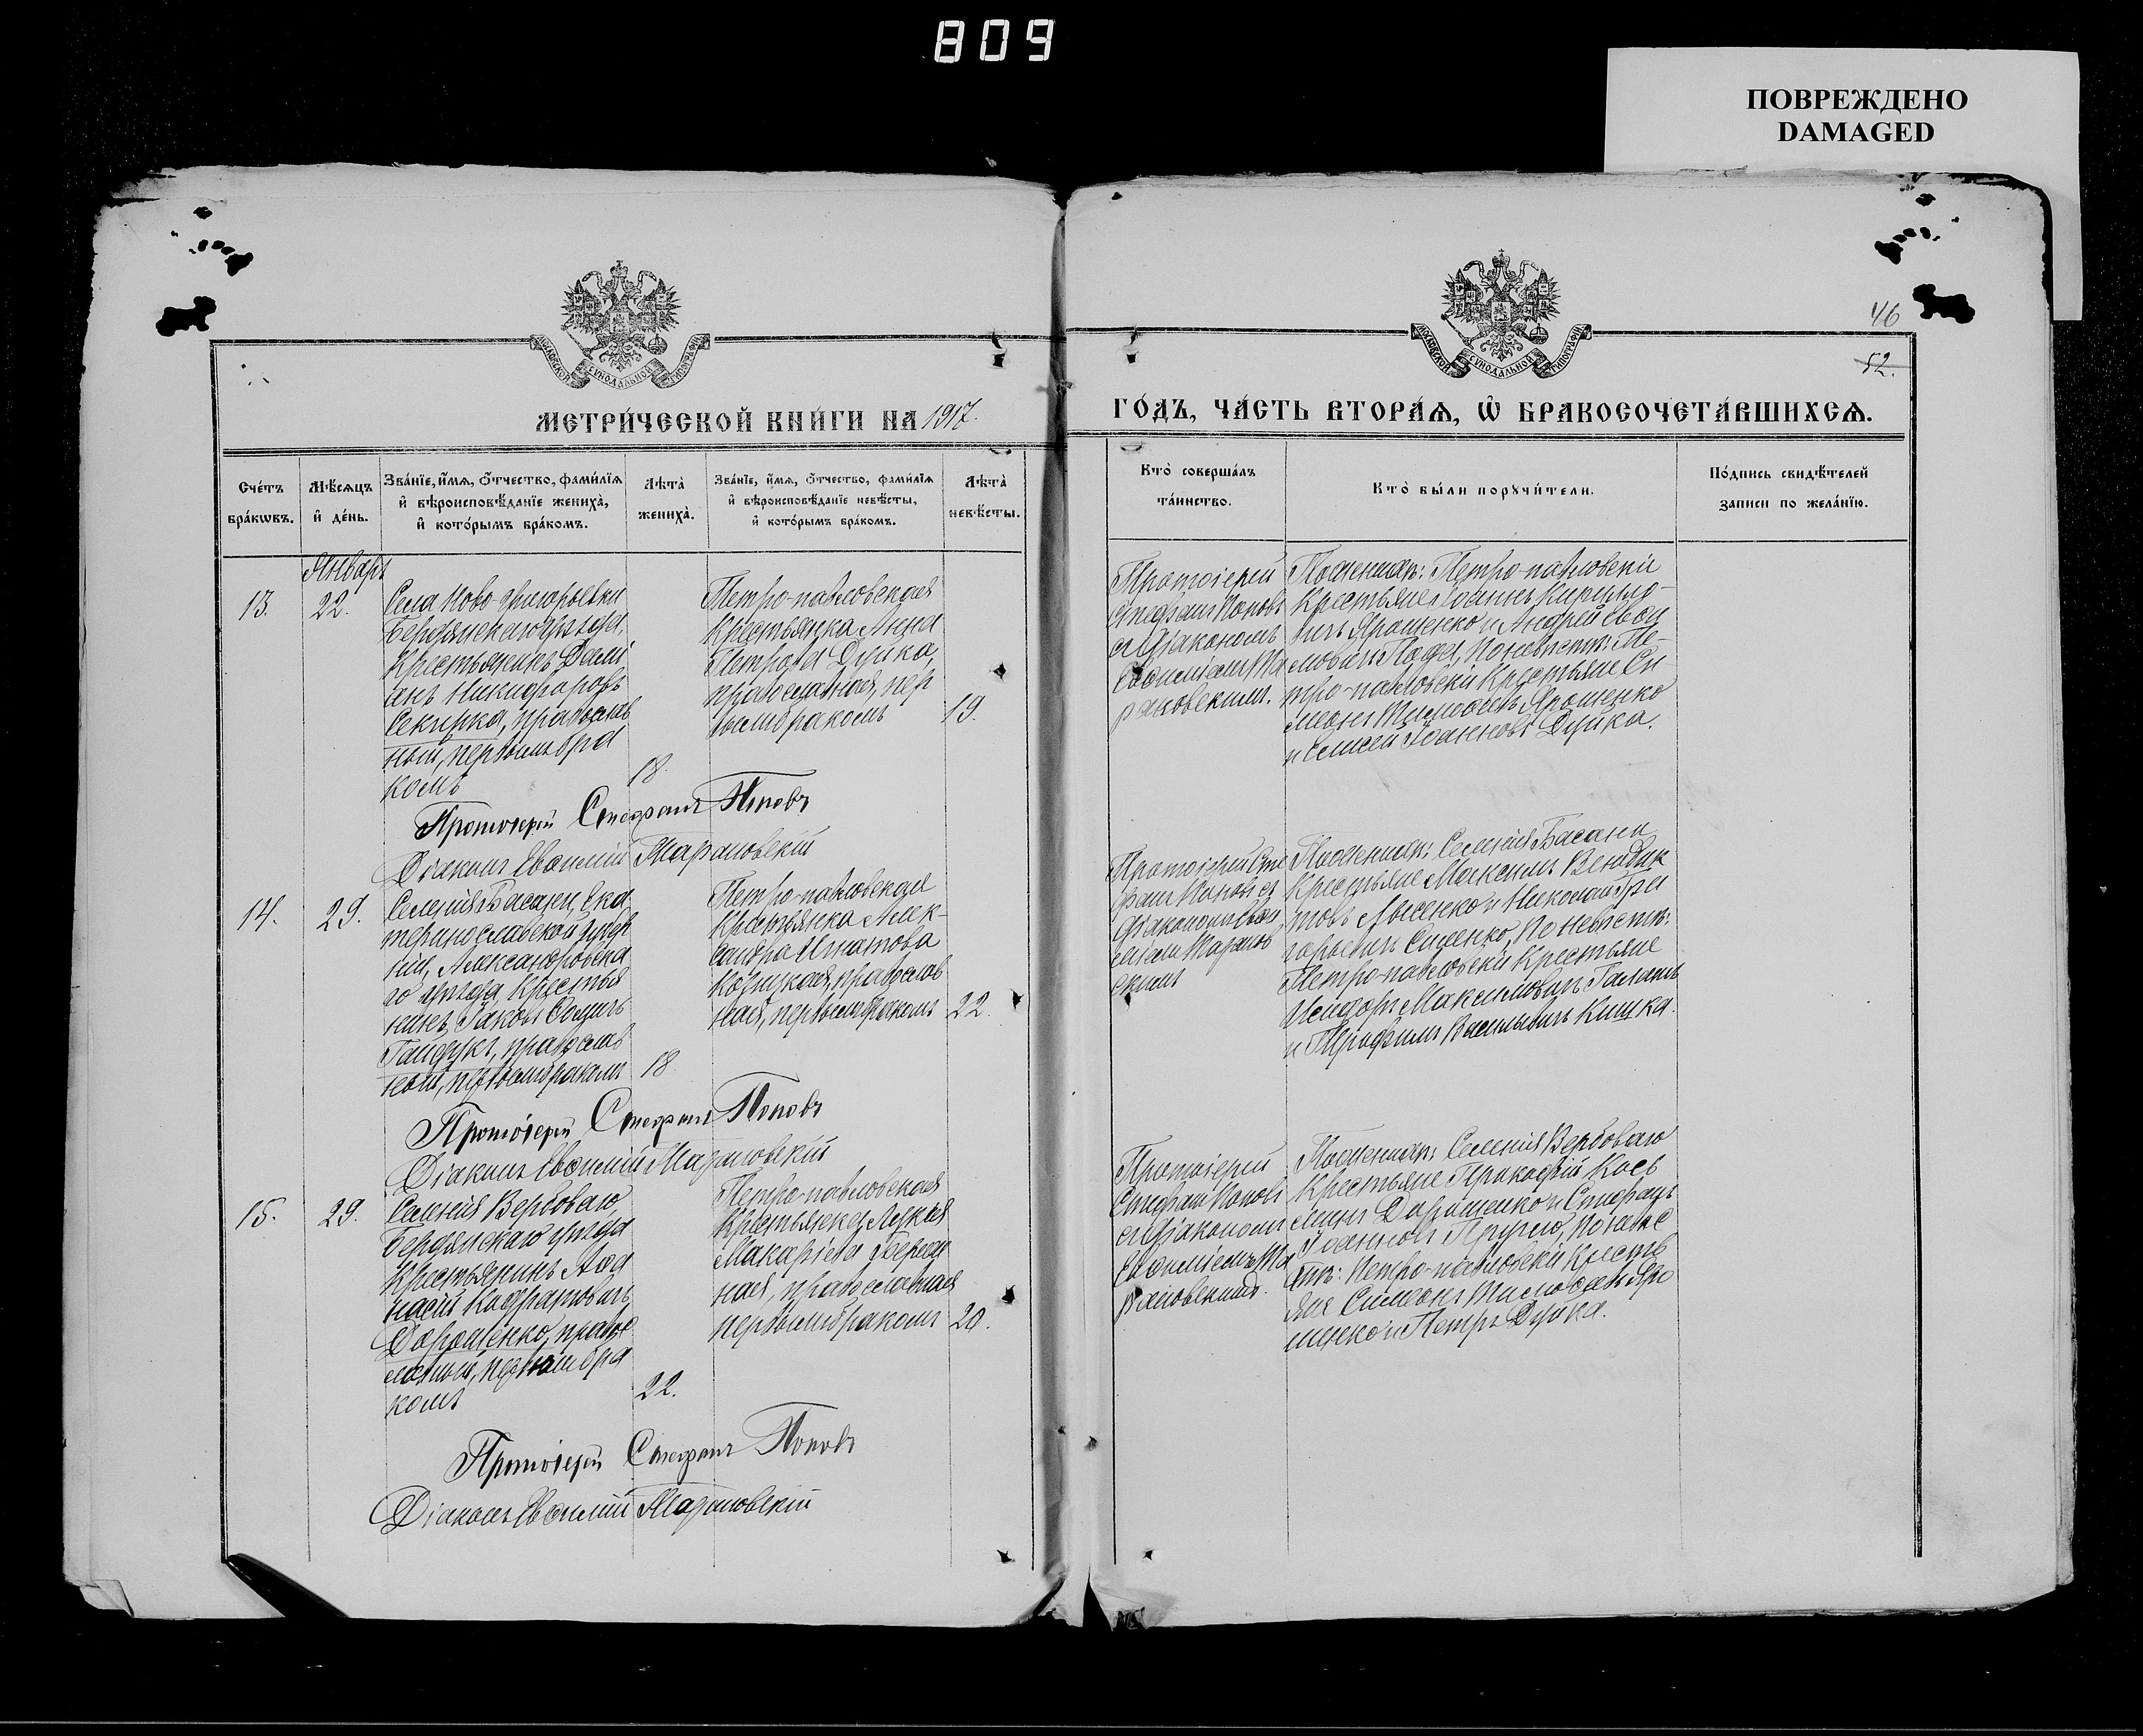 809
ПОВРЕЖДЕНО
DAMAGED
46
52.
МОСКОВСКОЙ СУНОДАЛЬНОЙ ТИПОГРАФІИ
МОСКОВСКОЙ СУНОДАЛЬНОЙ ТИПОГРАФІИ
МЕТРИ́ЧЕСКОЙ КНИ́ГИ НА 1917.
ГО́ДЪ, ЧА́СТЬ ВТОРА́Ѧ, Ѡ҆ БРАКОСОЧЕТА́ВШИХСѦ.
Сче́тъ
бра́кѡвъ.
Мѣ́сѧцъ
и҆ де́нь.
Зва́нїе, и҆́мѧ, ѻ҆́тчество, фами́лїѧ
и҆ вѣроисповѣ́данїе жениха̀,
и҆ кото́рымъ бра́комъ.
Лѣта̀
жениха̀.
Зва́нїе, и҆́мѧ, ѻ҆́тчество, фами́лїѧ
и҆ вѣроисповѣ́данїе невѣ́сты,
и҆ кото́рымъ бра́комъ.
Лѣта̀
невѣ́сты.
Кто̀ соверша́лъ
та́инство.
Кто̀ бы́ли порꙋчи́тели.
По́дпись свидѣ́телей
записи по жела́нїю.
Январь
13.
22.
Села Ново-Григорьевки
Бердянскаго уѣзда,
крестьянинъ Дамі
анъ Никифоровъ
Секирка, православ
ный, первымъ бра
комъ
18.
Петро-павловская
крестьянка Анна
Петрова Дуйка,
православная, пер
вымъ бракомъ
19.
Протоіерей
Стефанъ Поповъ
съ діакономъ
Евѳиміемъ Ма
рановскимъ.
По женихѣ: Петро-павловскіи
крестьяне Іоаннъ Кирилло-
вичъ Ярошенко и Андрей Евѳи
мовичъ Пода, По невѣстѣ: Пе-
тро-павловскіи крестьяне Си-
меонъ Тимоѳеевъ Ярошенко
и Елисей Іоанновъ Дуйка.
Протоіерей Стефанъ Поповъ
Діаконъ Евѳимій Марановскій
14.
29.
Селенія Басани, Ека
теринославской губер
ніи, Александровска
го уѣзда, крестья
нинъ, Іаковъ
Гайдукъ, православ
ный, первымъ бракомъ
18
Петро-павловская
крестьянка Алек-
сандра Игнатова
Козицкая, православ
ная, первымъ бракомъ
22.
Протоіерей Сте
фанъ Поповъ съ
діакономъ Евѳи
міемъ Маранов
скимъ
По женихѣ: Селенія Басани
крестьяне Максимъ
Лысенко и Николай Гри
горьевичъ Сиденко, По невѣстѣ:
Петро-павловскіи крестьяне
Исидоръ Максимовичъ Галашъ
и Трофимъ Васильевичъ Кишка.
Протоіерей Стефанъ Поповъ
Діаконъ Евѳимій Марановскій
15.
29.
Селенія Вербоваго,
Бердянскаго уѣзда
крестьянинъ Аѳа
насій Кодратовичъ
Дорошенко, правос
лавный, первымъ бра
комъ
22.
Петро-павловская
крестьянка Лукія
Макаріева
ная, православная
первымъ бракомъ
20.
Протоіерей
Стефанъ Поповъ
съ діакономъ
Евѳиміемъ Ма
рановскимъ.
По женихѣ: Селенія Вербоваго
крестьяне Прокофій Кось
минъ Дорошенко и Стефанъ
Іоанновъ По невѣс
тѣ: Петро-павловскіи кресть
яне Симеонъ Тимоѳеевъ Яро
шенко и Петръ Дуйка.
Протоіерей Стефанъ Поповъ
Діаконъ Евѳимій Марановскій